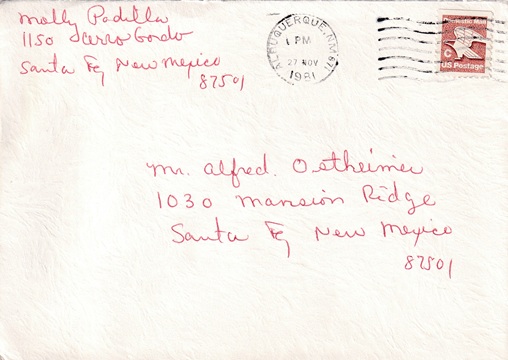 Molly Padilla
1150 Cerro Gordo
Santa Fe, New Mexico
87501
ALBUQUERQUE, NM 871
1 PM
27 NOV
1981
Domestic Mail
C
US Postage
Mr. Alfred Ostheimer
1030 Mansion Ridge
Santa Fe, New Mexico
87501